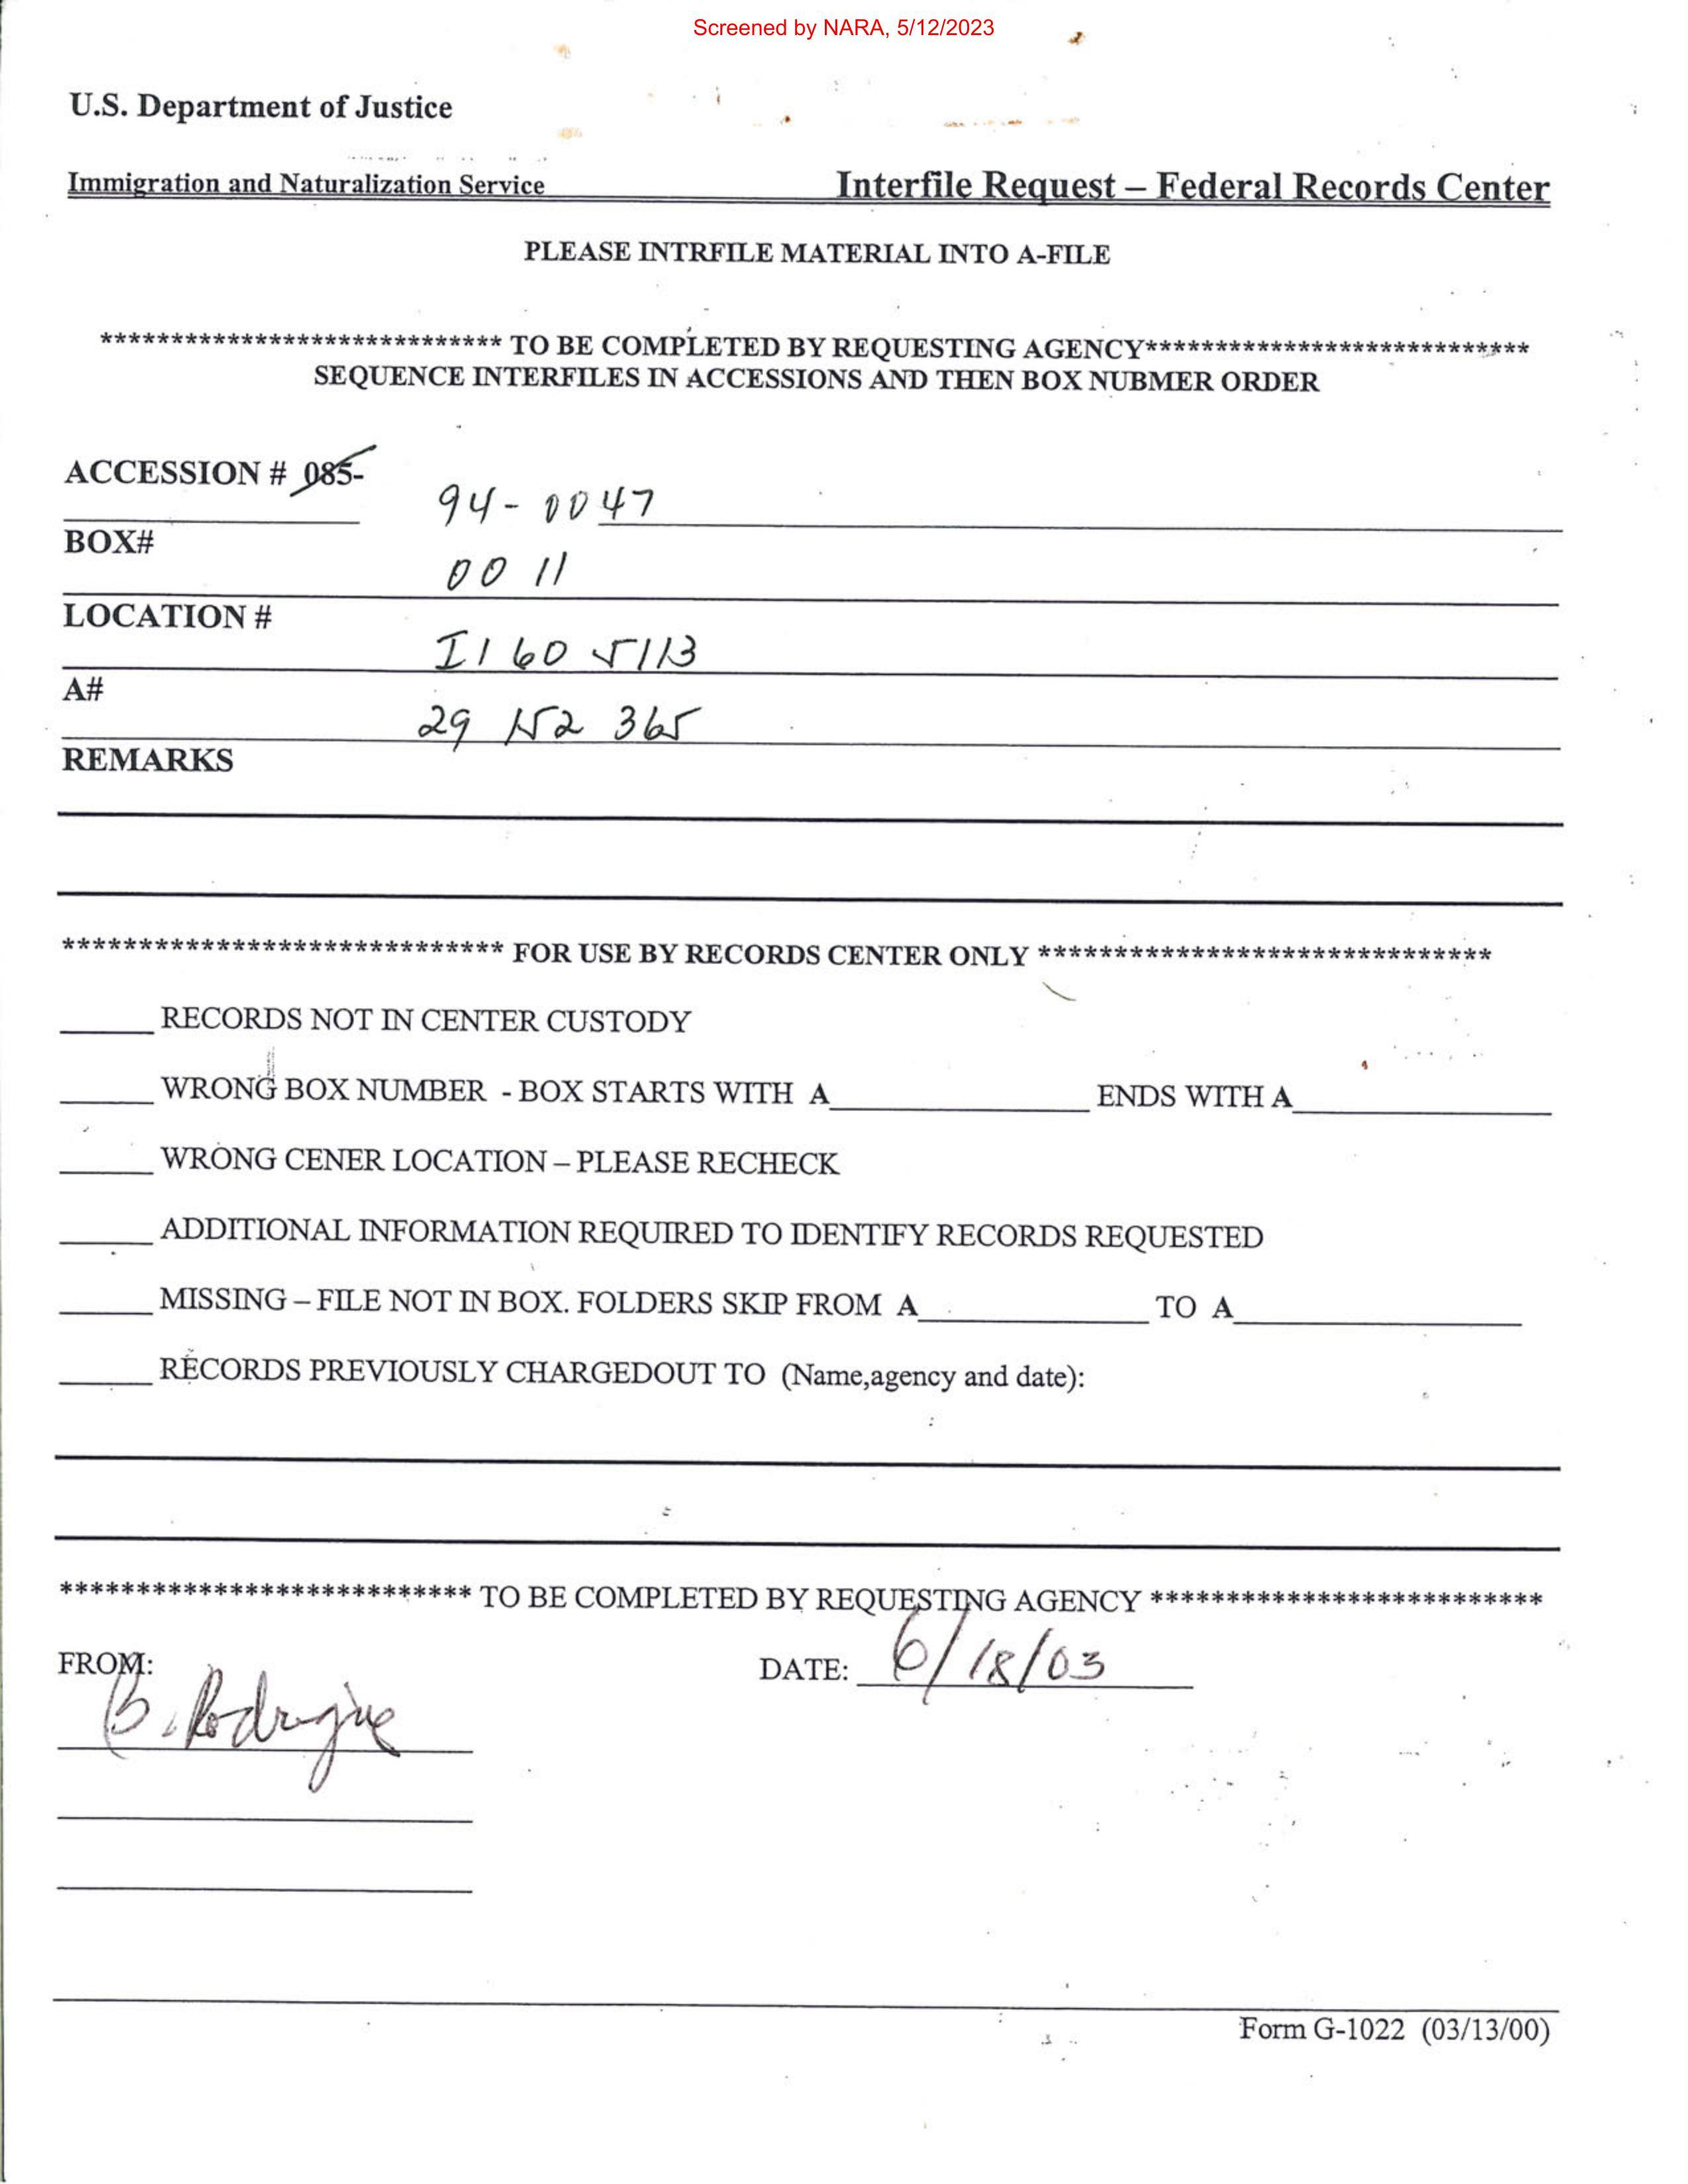 Screened by NARA, 5/12/2023
U.S. Department of Justice
Immigration and Naturalization Service Interfile Request – Federal Records Center
PLEASE INTRFILE MATERIAL INTO A-FILE
**************************** TO BE COMPLETED BY REQUESTING AGENCY***************************
SEQUENCE INTERFILES IN ACCESSIONS AND THEN BOX NUBMER ORDER
ACCESSION # 085-
94-0047
BOX#
0011
LOCATION #
I160 5113
A#
29 152 365
REMARKS
***************************** FOR USE BY RECORDS CENTER ONLY ******************************
_____ RECORDS NOT IN CENTER CUSTODY
_____ WRONG BOX NUMBER - BOX STARTS WITH A______________ ENDS WITH A______________
_____ WRONG CENER LOCATION – PLEASE RECHECK
_____ ADDITIONAL INFORMATION REQUIRED TO IDENTIFY RECORDS REQUESTED
_____ MISSING – FILE NOT IN BOX. FOLDERS SKIP FROM A____________ TO A_______________
_____ RECORDS PREVIOUSLY CHARGEDOUT TO (Name,agency and date):
*************************** TO BE COMPLETED BY REQUESTING AGENCY **************************
FROM: DATE: 6/18/03
B. Rodrigue
Form G-1022 (03/13/00)